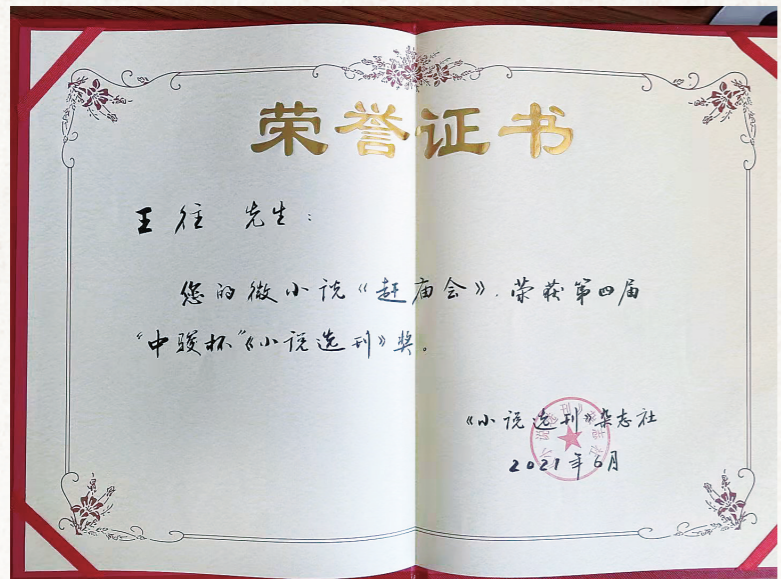 荣誉证书
王往 先生：
您的微小说《赶庙会》，荣获第四届
“中骏杯”《小说选刊》奖。
《小说选刊》杂志社
2021年6月